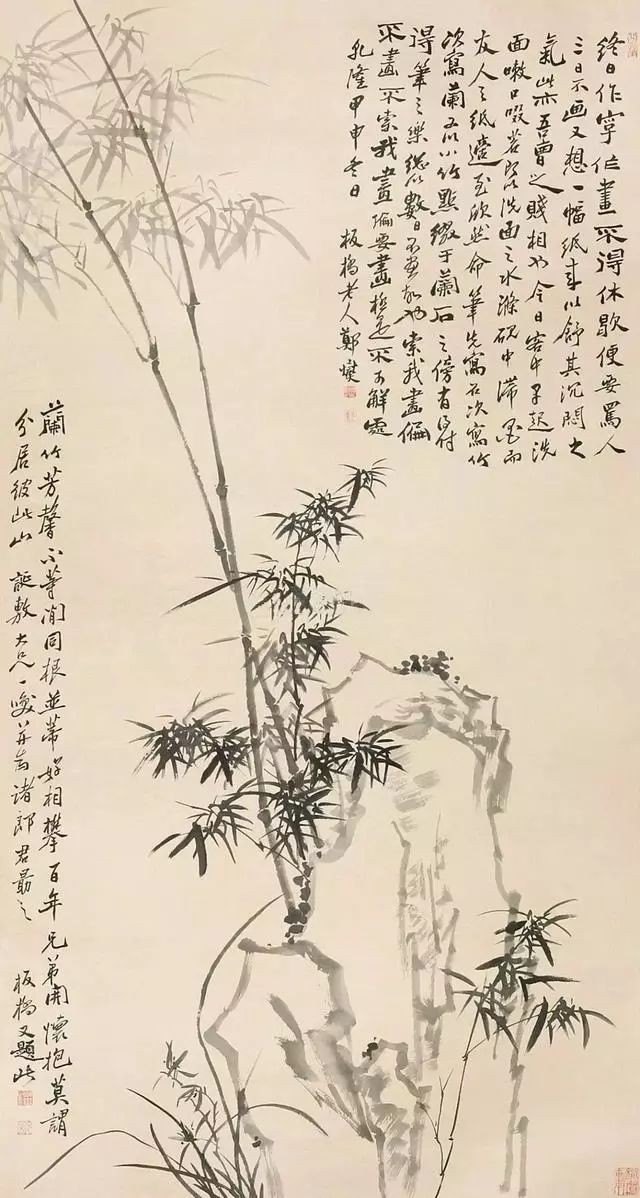 終日作字作畫不得休歇便要罵人
三日不画又想一幅紙來以舒其沉悶之
氣此亦吾曹之賤相也今日客中早起洗
面嗽口啜茗即以洗面之水滌硯中滯墨而
友人之紙適至欣然命筆先寫石次寫竹
次寫蘭又以小竹點綴于蘭石之傍
得筆之樂總以數日不畫故也索我畫偏
不畫不索我畫偏要畫極是不可解處
乾隆甲申冬日 板橋老人鄭燮
蘭竹芳馨不等閒同根並蒂好相攀百年兄弟開懷抱莫謂
分居彼此山 誕敷大兄一咲并示诸郎君勗之 板橋又題此